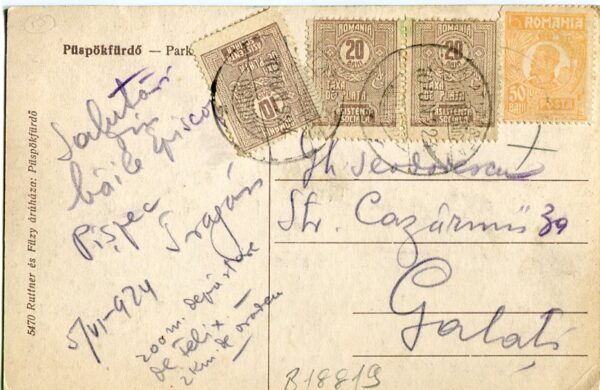 Püspökfürdő — Park
5470 Ruttner és Füzy áruháza: Püspökfürdő
Salutări
din
băile episco
pişpec
Dragăn
5/VI-924
200 m. depărtare
de Felix.
2 km. de oradea
10
ROMANIA
20
BANI
TAXA
DE PLATA
ASISTENTA
SOCIALA
ROMANIA
20
BANI
TAXA
DE PLATA
ASISTENTA
SOCIALA
ROMANIA
50
POSTA
BANI
Gh Teodorescu
Str. Cazărmii 39
Galati
B18819